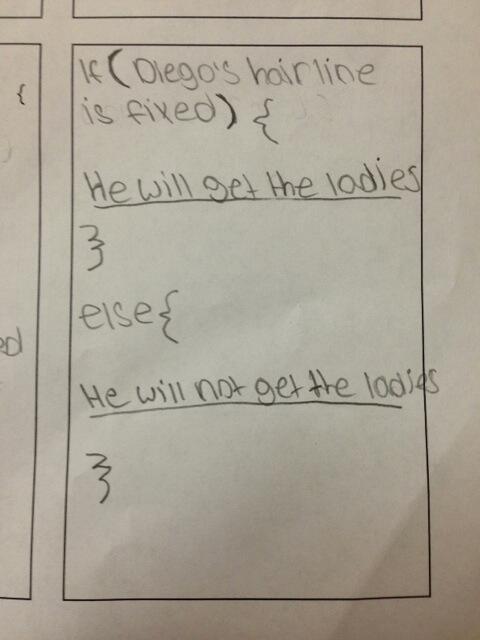 {
If (Diego's hairline
is fixed) {
He will get the ladies
}
else {
ed
He will not get the ladies
}